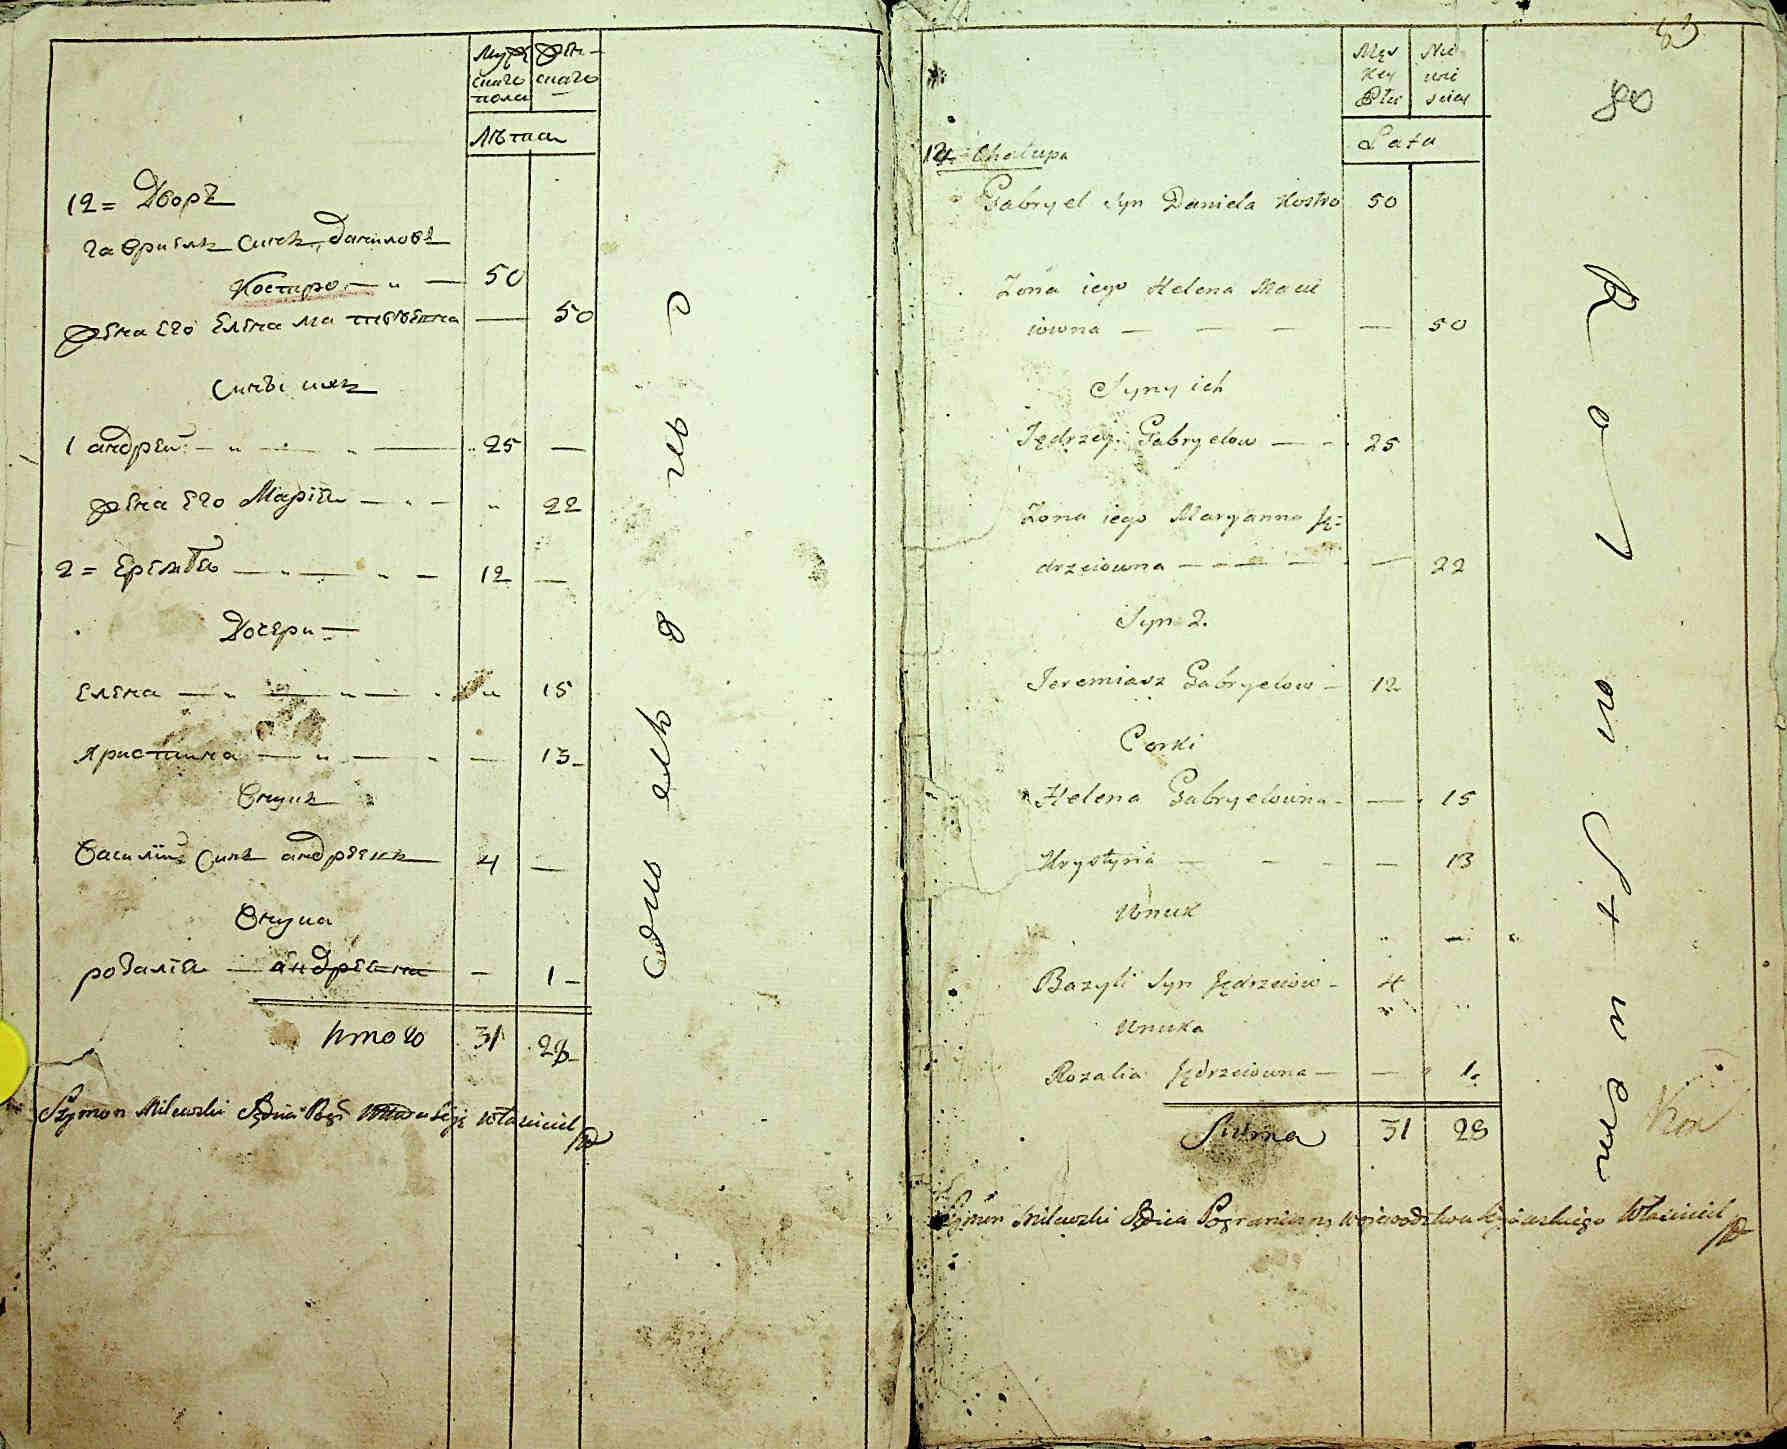 Мужескаго пола
женскаго
Лѣта
12 = Дворъ
гавриилъ Синъ даниловъ
Костыро 50
жена его Елена матвѣевна 50
Сины ихъ
1 андрей 25
жена его Марія 22
2 = Еремѣй 12
Дочери
Елена 15
христина 13
Внукъ
Василій Синъ андреевъ 4
Внука
розалія андреевна 1
Итого 31 28
Szymon Milewski Sędzia Właściciel
83
80
Męs kiey Płci
Nie wie sciey
Lata
12 Chałupa
Gabryel Syn Daniela Kostro 50
Zona iego Helena Maci
iowna 50
Syny ich
Jędrzey Gabryelow 25
Zona iego Maryanna Ję=
drzeiowna 22
Syn 2.
Jeremiasz Gabryelow 12
Corki
Helena Gabryelowna 15
Krystyna 13
Wnuk
Bazyli Syn Jędrzeiow 4
Wnuka
Rozalia Jędrzeiowna 1
Suma 31 28
Szymon Milewski Sędzia Pograniczny Wojewodztwa Kijowskiego Właściciel